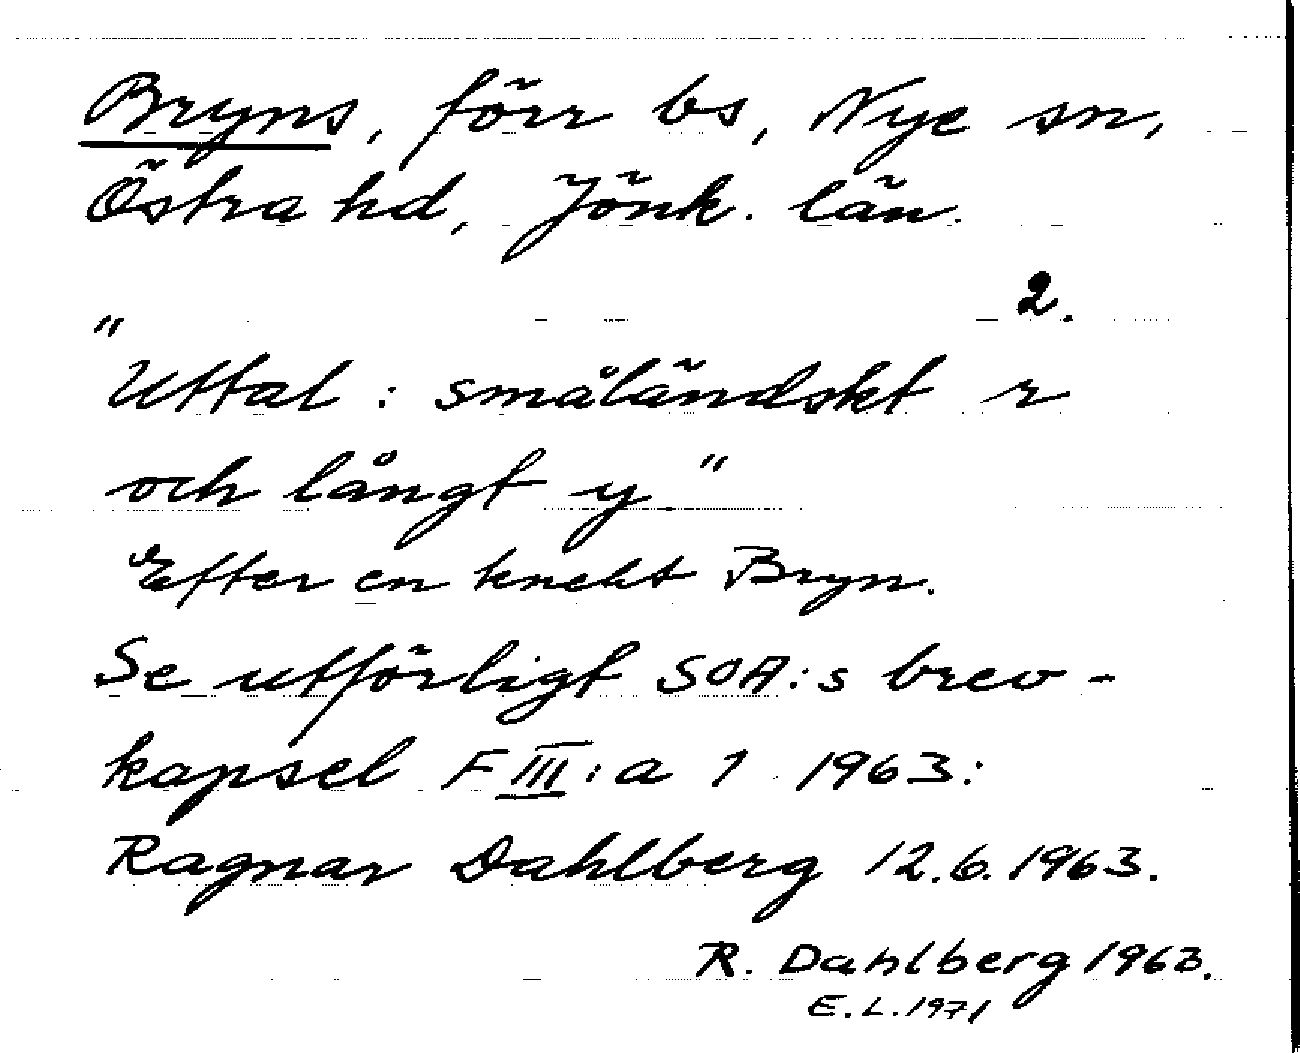 Bryns, förr bs, Nye sn,
Östra hd, Jönk. län.
2.
"
Uttal: småländskt r
och långt y"
Efter en knekt Bryn.
Se utförligt SOA:s brev-
kapsel F III:a 1 1963:
Ragnar Dahlberg 12.6.1963.
R. Dahlberg 1963.
E.L.1971